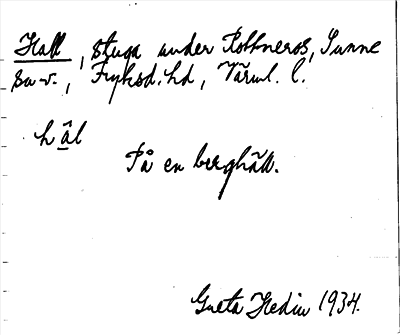 Hall, stuga under Rottneros, Sunne
sn v., Fryksd. hd, Värml. l.
hâ̱l
På en berghäll.
Greta Hedin 1934.